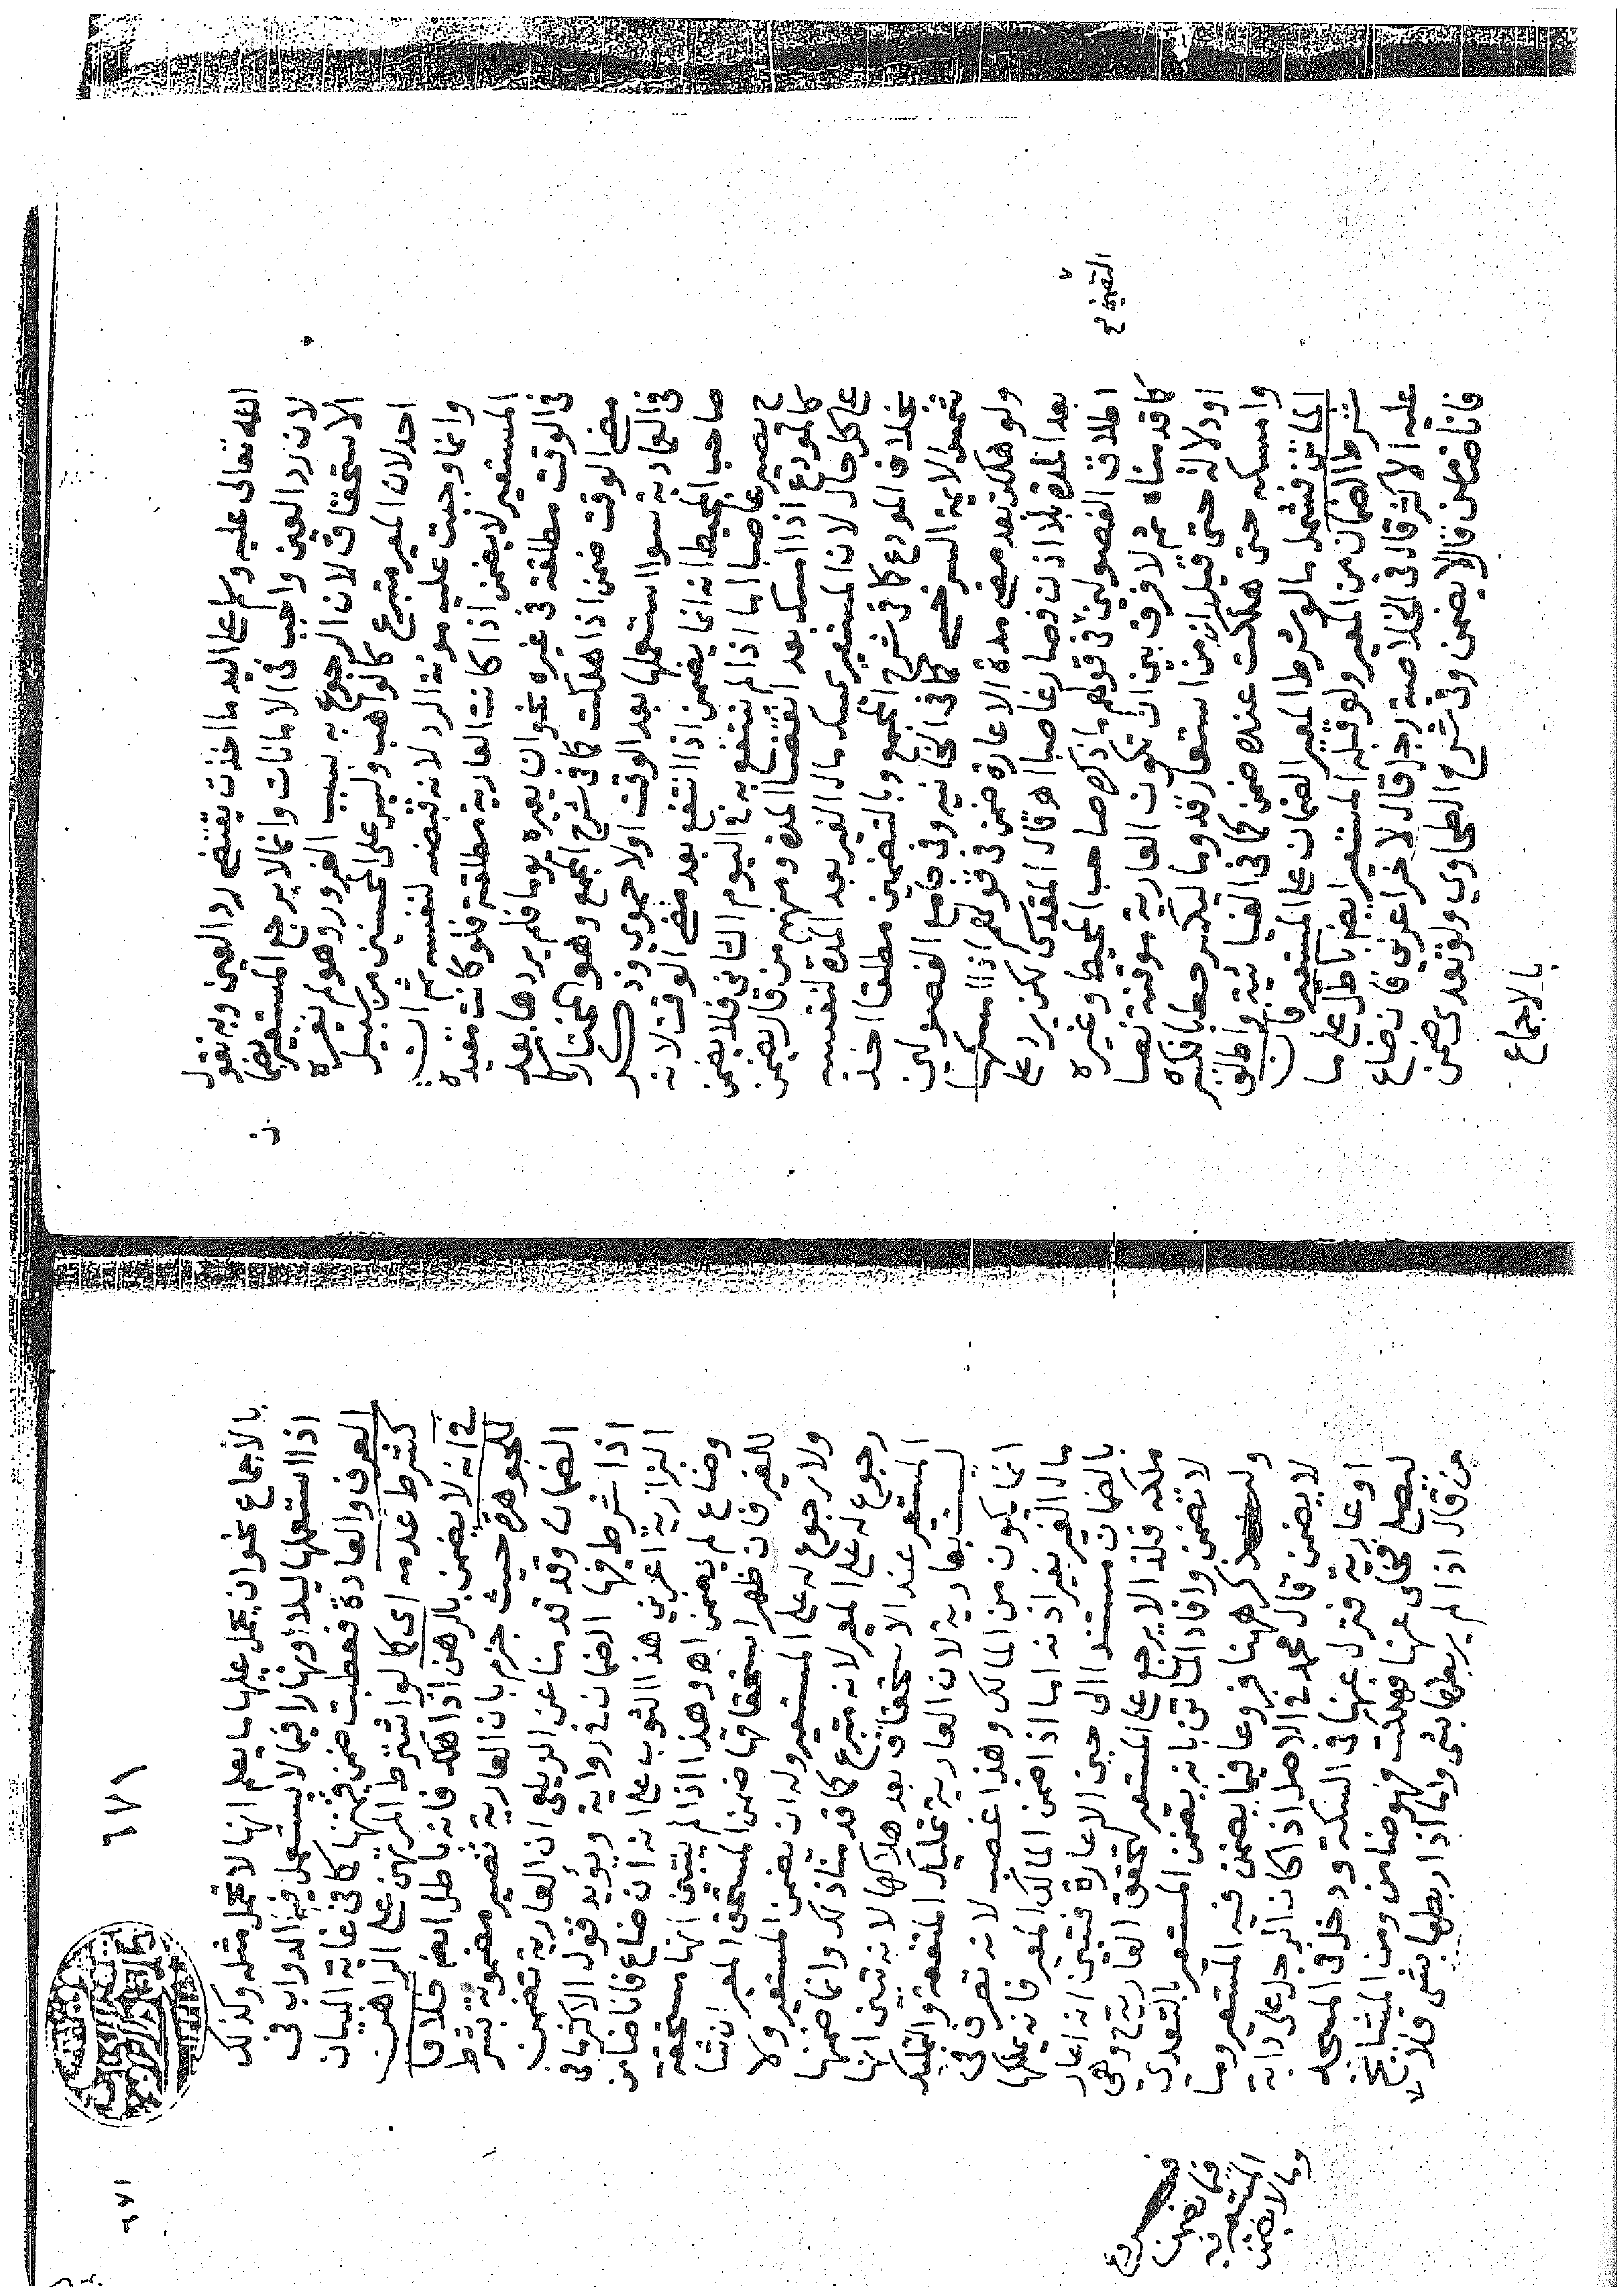 الله تعالى عليه وسلم على اليد ما اخذت يقتضى رد العين وبه نقول
لان رد العين واجب فى الامانات وانما لا يرجع المستعير بضمان
الاستحقاق لان الرجوع به بسبب الغرور وهو لم يغره
احد لان المعير متبرع كالواهب وليس على المحسنين من سبيل
وانما وجبت عليه مونة الرد لانه قبضه لنفسه ثم ان
المستعير لا يضمن اذا كانت العارية مطلقة فلو كانت مقيدة
فى الوقت مطلقة فى غيره نحو ان يعيره يوما فلم يردها بعد
مضى الوقت ضمن اذا هلكت كما فى شرح المجمع وهو المختار كما
فى العمادية سوا استعملها بعد الوقت اولا حموي وذكر
صاحب المحيط انه انما يضمن اذا انتفع بعد مضى الوقت لانه
ح يصير غاصبا اما اذا لم ينتفع به فى اليوم الثانى فلا يضمن
كالمودع اذا امسك بعد انقضا المدة ومنهم من قال يضمن
على كل حال لان المستعير يمسك مال الغير بعد المدة لنفسه
بخلاف المودع كما فى شرح المجمع وبالتضمين مطلقا اخذ
شمس الايمة السرخسى كما فى الخانيه وفى جامع الفصولين
ولو هلكت بعد مضى مدة الاعارة ضمن فى قولهم اذا امسكها
بعد المدة بلا اذن فصار غاصبا اهـ قال المقدسى لكن يرد على
اطلاق الفصولين فى قولهم ما ذكره صاحب المحيط وغيره
كما قدمناه ثم لا فرق بين ان تكون العارية موقتة نصا
او دلالة حتى قيل ان من استعار قدوما ليكسر حطبا فكسره
وامسكه حتى هلكت عنده ضمن كما فى الغياثية واطلق
الماتن فشمل ما لو شرط المعير الضمان على المستعير فان
شرط الضمان من المعير ولو قبله المستعير ايضا باطل على ما
عليه الاكثر قال فى الخلاصة رجل قال لاخر اعرني فان ضاع
فانا ضامن قال لا يضمن وفى شرح الطحاوي ولو تعدى ضمن
بالاجماع
التضمين
١٧٦
١٧٦
بالاجماع نحو ان يحمل عليها ما يعلم انها لا تحمل مثله وكذلك
اذا استعملها ليلا ونهارا فيما لا يستعمل فيه الدواب فى
العرف والعادة فعطبت ضمن قيمتها كما فى غاية البيان
كشرط عدمه اى كما لو اشترط المرتهن على الراهن
انه لا يضمن بالرهن اذا هلك فانه باطل ايضا خلافا
للجوهرة حيث جزم بان العارية تصير مضمونة بشرط
الضمان وقد قدمنا عن الزيلعي ان العارية تضمن
اذا شرط فيها الضمان فى رواية ويؤيد قول الاكثر ما فى
البزازية اعرني هذا الثوب على انه ان ضاع فانا ضامن
وضاع لم يضمن اهـ وهذا اذا لم يتبين انها مستحقة
للغير فان ظهر استحقاقها ضمن المستحق المعير ان شا
ولا رجوع له على المستعير وله ان يضمن المستعير ولا
رجوع له على المعير لانه متبرع كما قدمنا ذكره وانما ضمنها
المستعير عند الاستحقاق بعد هلاكها لانه تبين انها
ليست بعارية لان العارية تمليك المنفعة والتمليك
انما يكون من المالك وهذا غصب لانه تصرف فى
مال الغير بغير اذنه اما اذا ضمن المالك المعير فانه يملكها
بالضمان مستندا الى حين الاعارة فتبين انه اعار
ملكه فلذا لا يرجع على المستعير لتحقق العارية ح وهى
لا تضمن وافاد الماتن بانه يضمن المستعير بالتعدى
ولنذكر ههنا فروعا فيما يضمن فيه المستعير وما
لا يضمن قال محمد فى الاصل اذا كان الرجل على دابة
او عارية فنزل عنها فى السكة ودخل فى المسجد
ليصلى فخلى عنها فهلكت فهو ضامن ومن المشايخ
من قال اذا لم يربطها بشى واما اذا ربطها بشى فلا
فروع
فيما يضمن
المستعير فيه
وما لا يضمن